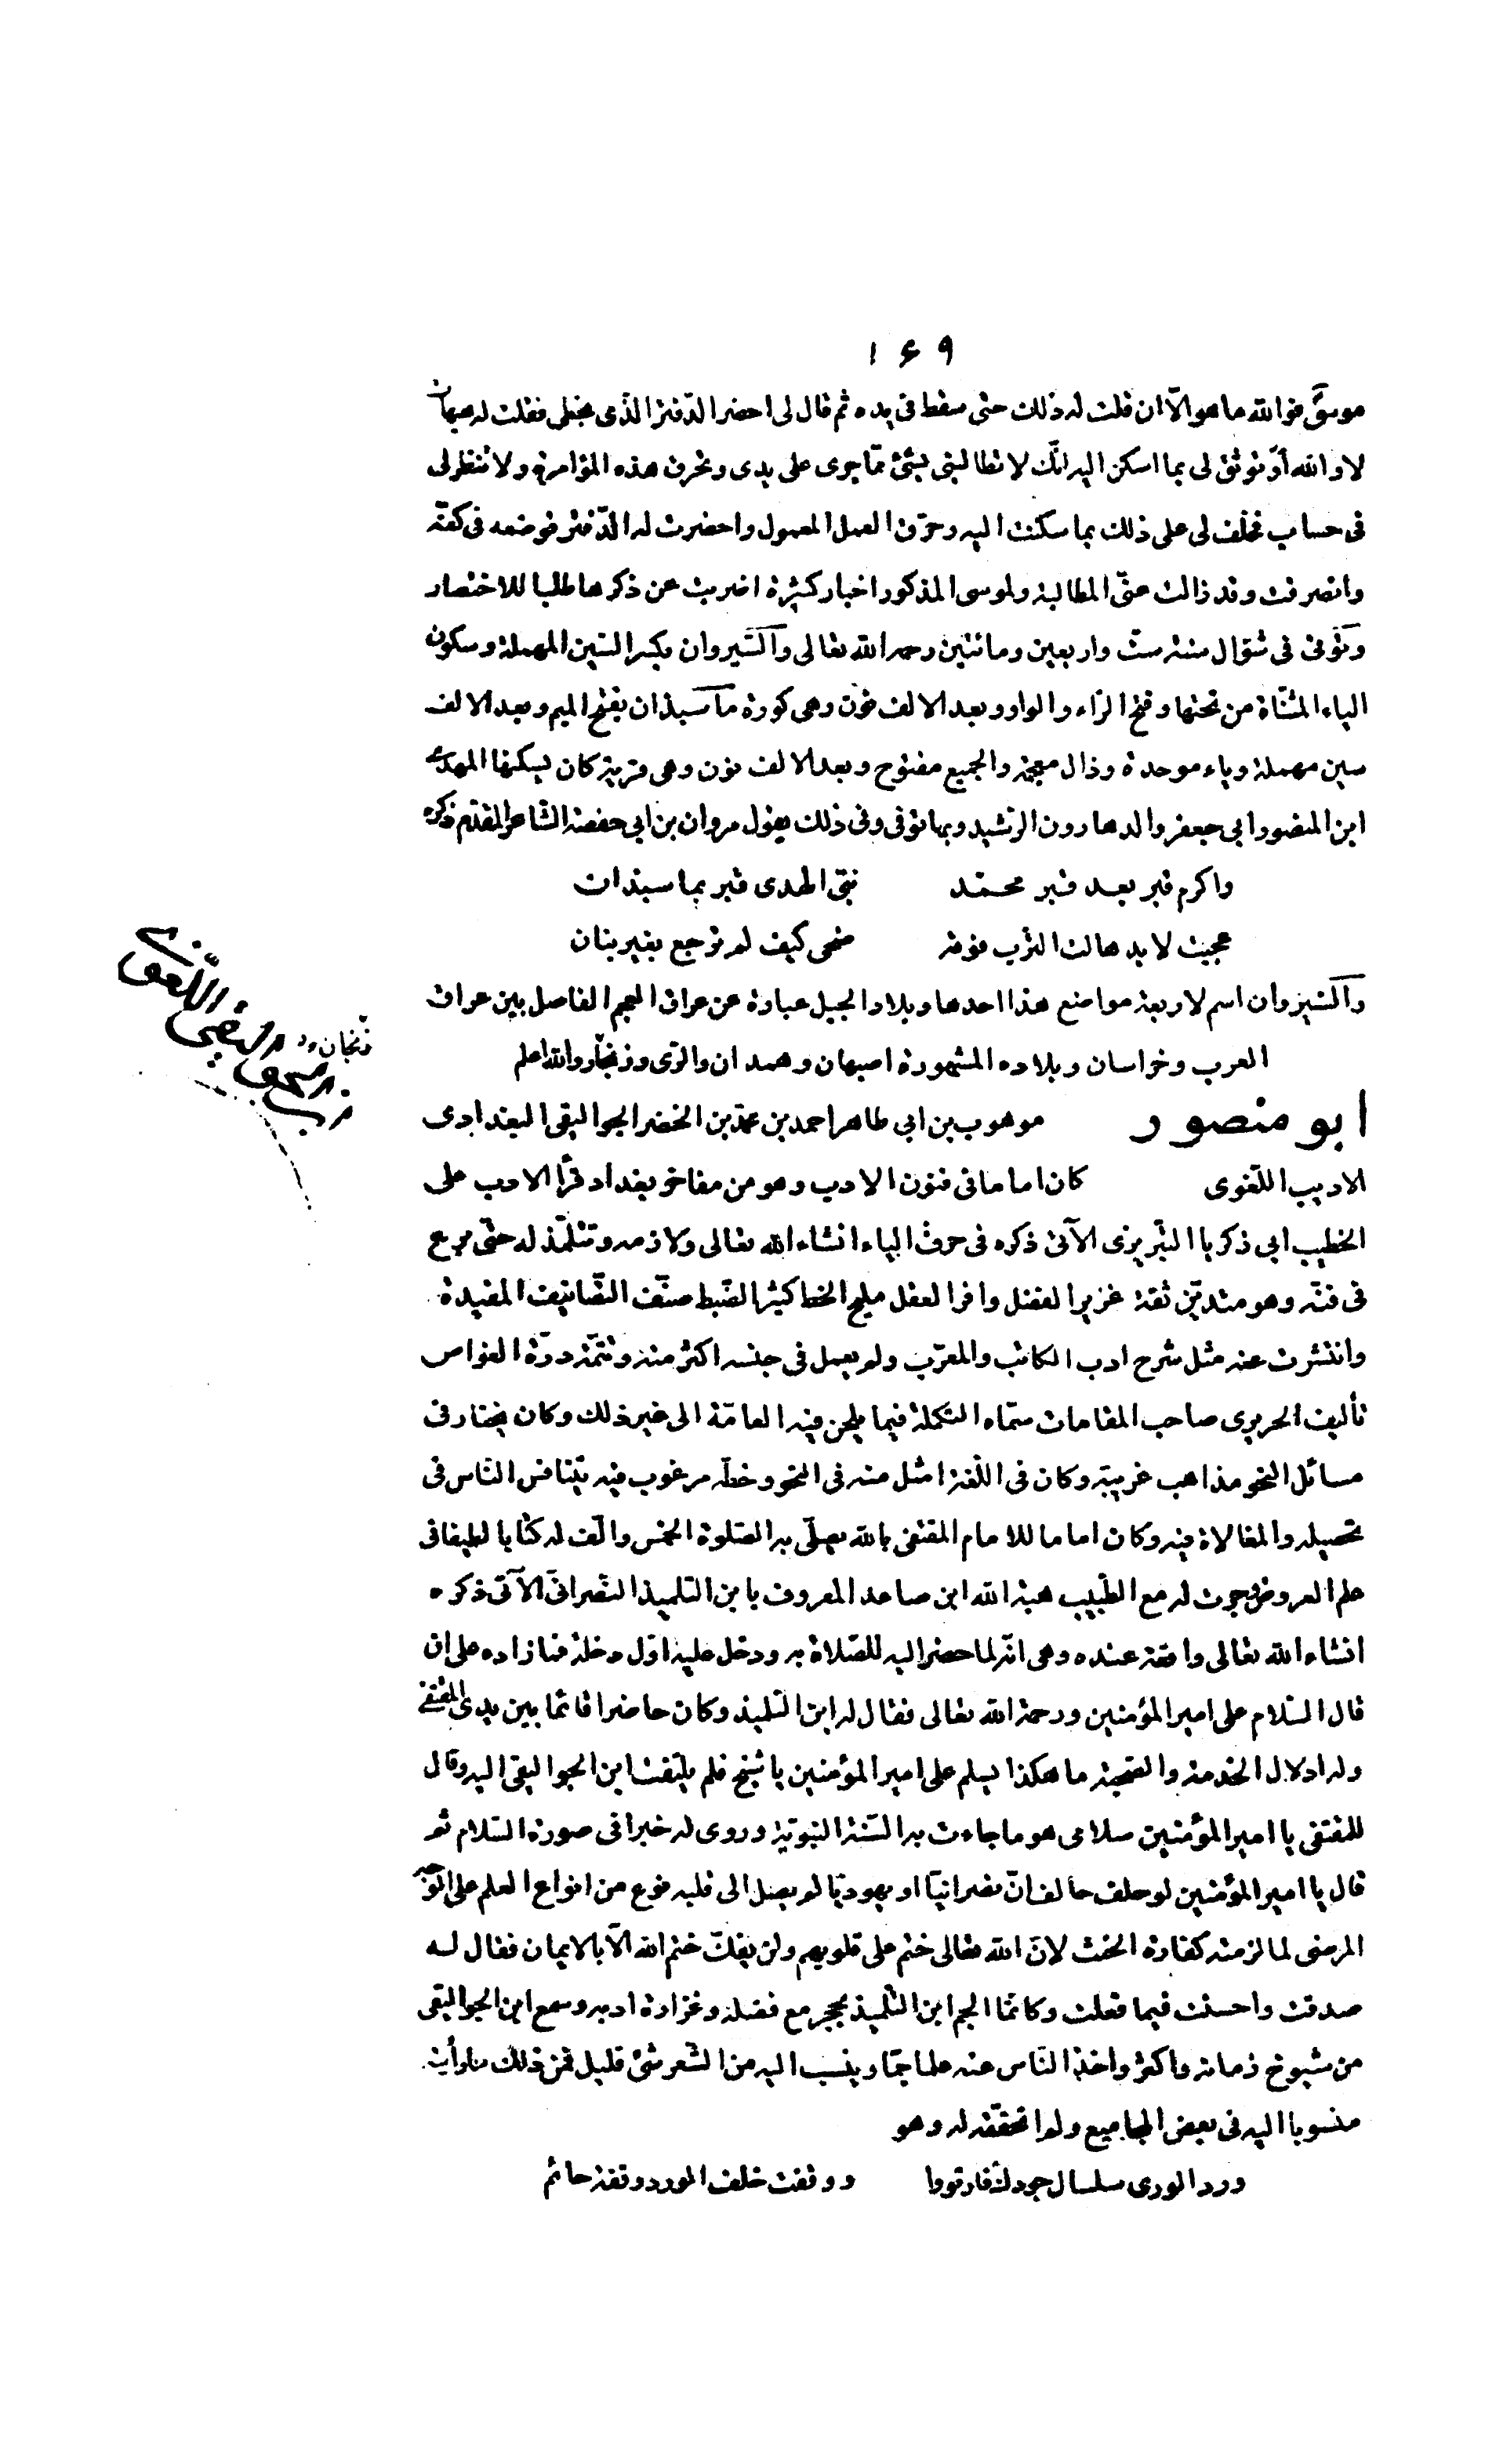 ۱۶۹
موسى فوالله ما هو الّا ان قلت له ذلك حتى سقط فى يده ثم قال لى احضر الدّفتر الّذى بخطى فقلت له هيهات
لا والله أو توثق لى بما اسكن اليه انّك لا تطالبنى بشئ ممّا جرى على يدى وتخرق هذه المؤامرة ولا تنظر لى
فى حساب فحلف لى على ذلك بما سكنت اليه وخرّق العمل المعمول واحضرت له الدّفتر فوضعه فى كفّه
وانصرفت وقد زالت عنّى المطالبة ولموسى المذكور اخبار كثيرة اضربت عن ذكرها طلبا للاختصار
وتوّفى فى شوّال سنة ستّ واربعين ومائتين رحمه الله تعالى والسّيروان بكسر السّين المهملة وسكون
الياء المثنّاة من تحتها وفتح الرّاء والواو وبعد الالف نون وهى كورة ماسبذان بفتح الميم وبعد الالف
سين مهملة وباء موحدة وذال معجمة والجميع مفتوح وبعد الالف نون وهى قرية كان يسكنها المهدى
ابن المنصور ابى جعفر والد هارون الرّشيد وبها توفى وفى ذلك يقول مروان بن ابى حفصة الشّاعر المقدّم ذكره
واكرم قبر بعد قبر محمّد نبىّ الهدى قبر بماسبذان
عجبت لايد هالت الترب فوقه ضحى كيف لم ترجع بغير بنان
والسّيروان اسم لاربعة مواضع هذا احدها وبلاد الجبل عبارة عن عراق العجم الفاصل بين عراق
العرب وخراسان وبلاده المشهورة اصبهان وهمدان والرّى وزنجان والله اعلم
زنجان
ابو منصور موهوب بن ابى طاهر احمد بن محمّد بن الخضر الجواليقى البغدادى
الاديب اللّغوى كان اماما فى فنون الادب وهو من مفاخر بغداد قرأ الادب على
الخطيب ابى زكريا التبريزى الآتى ذكره فى حرف الياء انشاء الله تعالى ولازمه وتتلمّذ له حتّى برع
فى فنّه وهو متديّن ثقة غزير الفضل وافر العقل مليح الخط كثير الضّبط صنّف التّصانيف المفيدة
وانتشرت عنه مثل شرح ادب الكاتب والمعرّب ولم يعمل فى جنسه اكثر منه وتتمّة درّة الغواص
تأليف الحريرى صاحب المقامات سمّاه التكملة فيما يلحن فيه العامّة الى غير ذلك وكان يختار فى
مسائل النحو مذاهب غريبة وكان فى اللّغة امثل منه فى النحو وخطّه مرغوب فيه يتنافس النّاس فى
تحصيله والمغالاة فيه وكان اماما للامام المقتفى بالله يصلّى به الصّلوة الخمس والّف له كتابا لطيفا فى
علم العروض وجرت له مع الطّبيب هبة الله ابن صاعد المعروف بابن التلميذ النّصرانىّ الآتى ذكره
انشاء الله تعالى واقعة عنده وهى انّه لما حضر اليه للصّلاة به ودخل عليه اوّل دخلة فما زاده على ان
قال السّلام على امير المؤمنين ورحمة الله تعالى فقال له ابن التلميذ وكان حاضرا قائما بين يدى المقتفى
وله ادلال الخدمة والصّحبة ما هكذا يسلم على امير المؤمنين يا شيخ فلم يلتفت ابن الجواليقى اليه وقال
للمقتفى يا امير المؤمنين سلامى هو ما جاءت به السّنة النبويّة وروى له خبرا فى صورة السّلام ثم
قال يا امير المؤمنين لو حلف حالف انّ نصرانيّا او يهوديّا لم يصل الى قلبه نوع من انواع العلم على الوجه
المرضى لما لزمته كفارة الحنث لانّ الله تعالى ختم على قلوبهم ولن يفكّ ختم الله الّا بالايمان فقال له
صدقت واحسنت فيما فعلت وكانّما الجم ابن التلميذ بحجر مع فضله وغزارة ادبه وسمع ابن الجواليقى
من شيوخ زمانه واكثر واخذ النّاس عنه علما جمّا وينسب اليه من الشّعر شئ قليل فمن ذلك ما رأيته
منسوبا اليه فى بعض المجاميع ولم اتحقّقه له وهو
ورد الورى سلسال جودك فارتووا ووقفت خلف المورد وقفة حائم